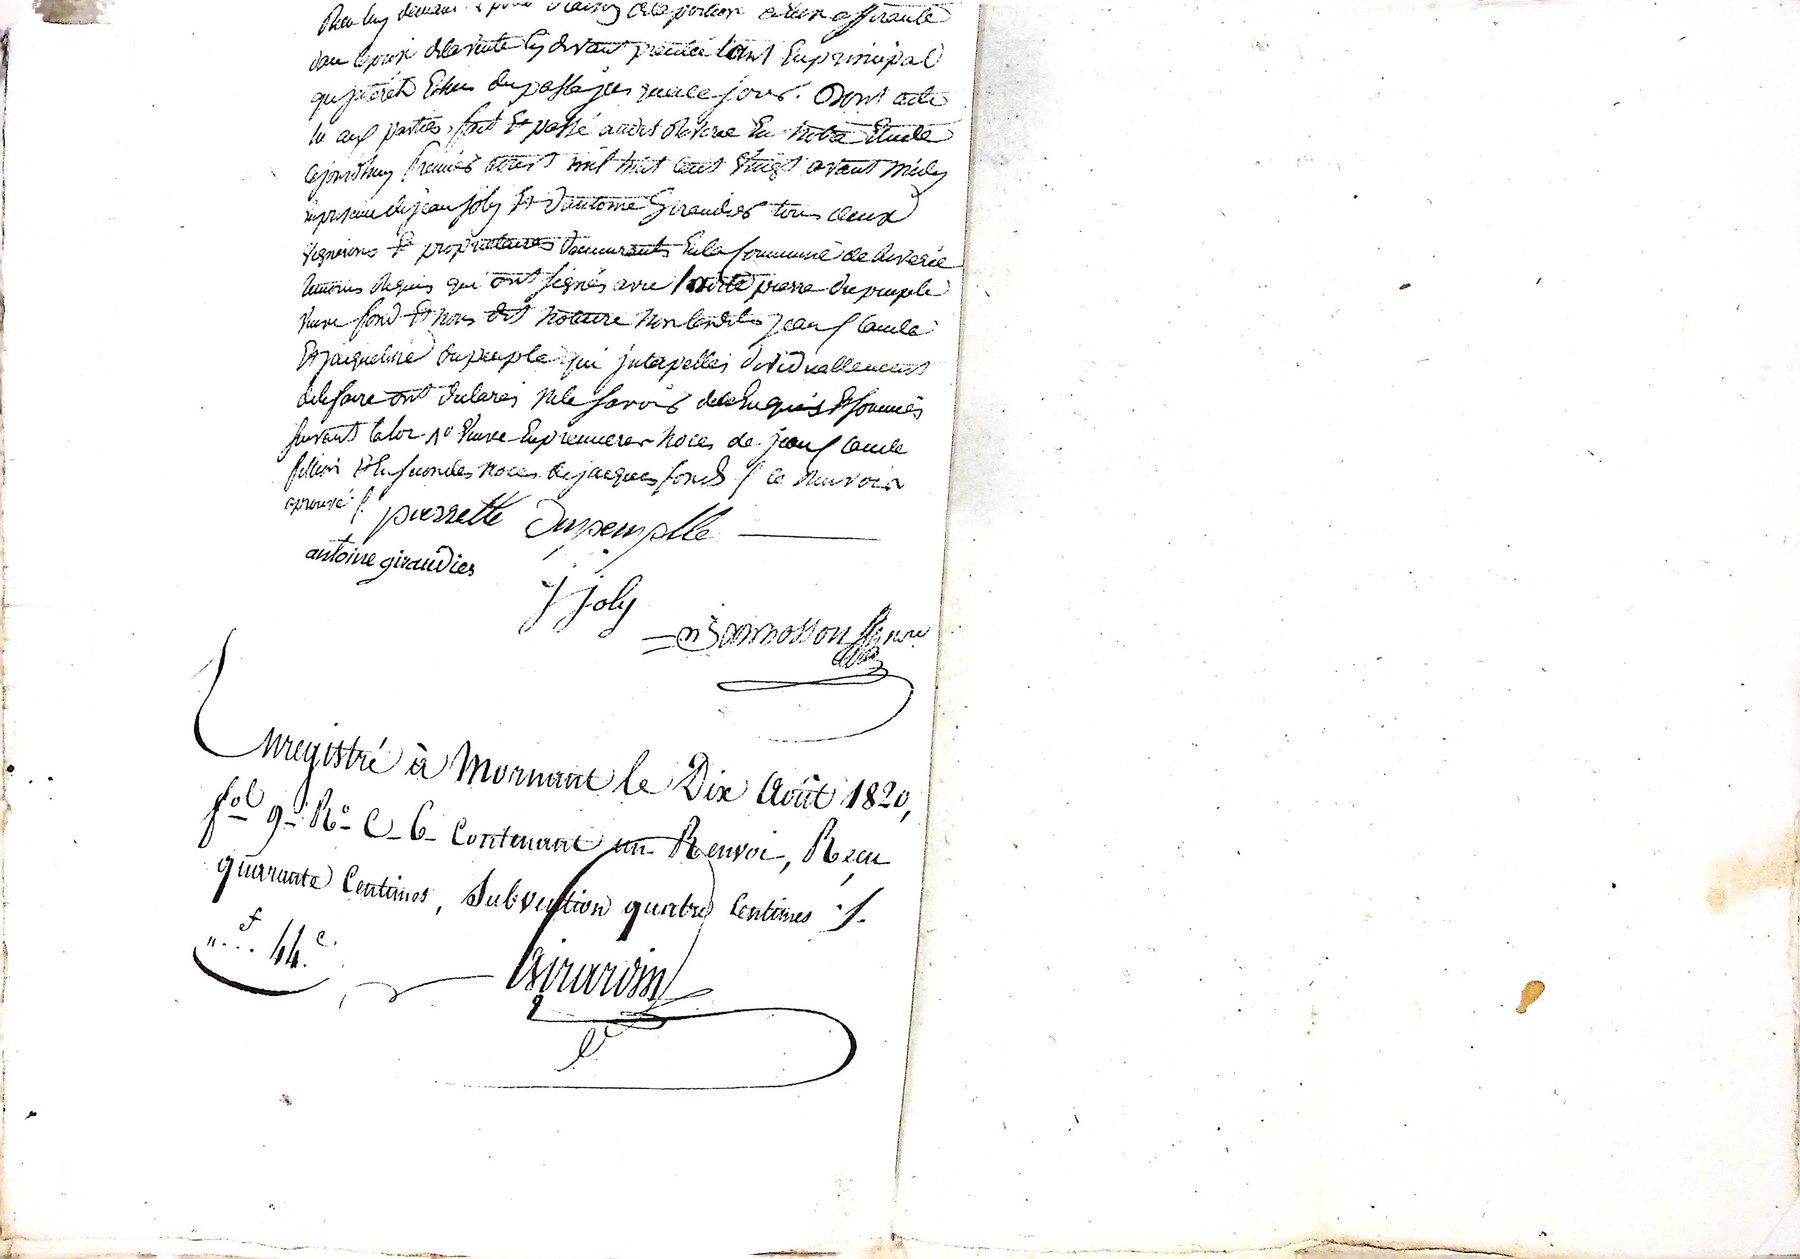 Rien luy demander pour raison de la portion a eux afferante
dans le prix de la vente cy devant tant En principal
qu'jnterets Echus du passé jusqua ce jour. Dont acte
lu aux parties, fait Et passé audit Riverie En notre Etude
cejourdhuy premier aoust mil huit cent vingt avant midy
En presence de jean joly Et d'antoine Giraudier tous deux
vignerons Et proprietaires demeurants En la Commune de Riverie
temoins Requis qui ont signés avec laditte pierrette Dupeuple
veuve fond Et nous dit notaire non lesdits jean Claude
Et jacqueline Dupeuple qui jnterpellés
de le faire ont declarés ne le savoir de ce Enquis Et sommés
suivant la loi 1º veuve En premieres noces de jean Claude
Et En secondes noces de jacques fond / ce Renvoi
aprouvé /.
pierrette Dupeuplle
antoine giraudier
J joly
Enregistré à Mornant le Dix Août 1820,
fol 9 Rº C 6 Contenant un Renvoi, Reçu
quarante Centimes, Subvention quatre Centimes /.
f
".. 44 c.
Girardin